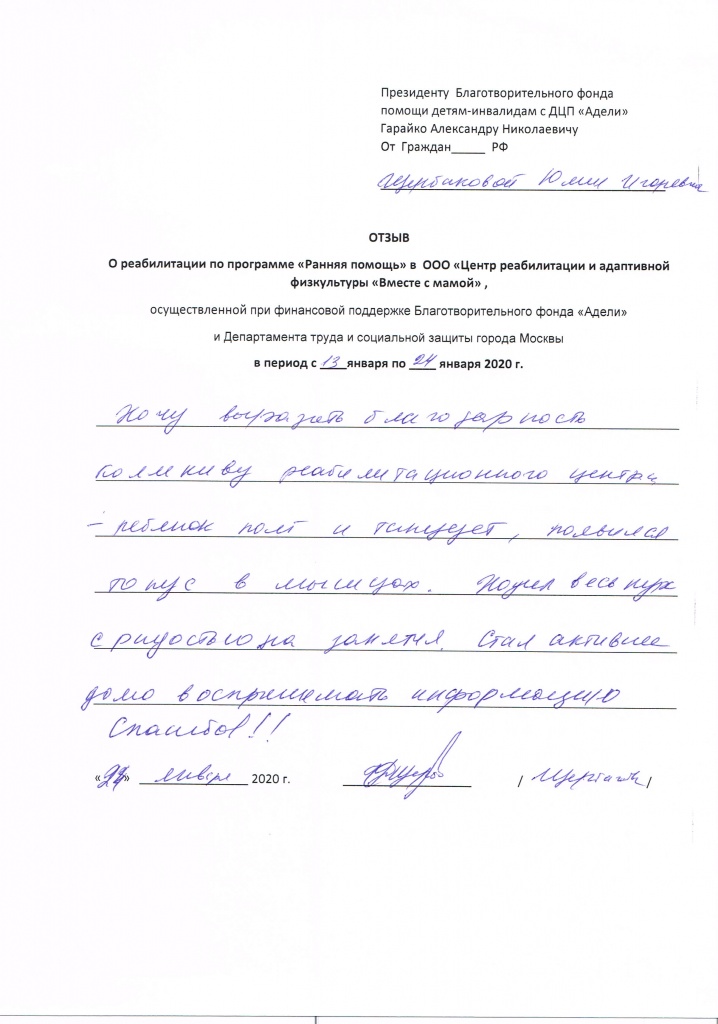 Президенту Благотворительного фонда
помощи детям-инвалидам с ДЦП «Адели»
Гарайко Александру Николаевичу
От Граждан_____ РФ
Щербаковой Юлии Игоревны
ОТЗЫВ
О реабилитации по программе «Ранняя помощь» в ООО «Центр реабилитации и адаптивной
физкультуры «Вместе с мамой» ,
осуществленной при финансовой поддержке Благотворительного фонда «Адели»
и Департамента труда и социальной защиты города Москвы
в период с 13 января по 24 января 2020 г.
Хочу выразить благодарность
коллективу реабилитационного центра
– ребенок поет и танцует, появился
тонус в мышцах. Ходил весь
с радостью на занятия. Стал активнее
дома воспринимать информацию
Спасибо!!!
«24» января 2020 г. / /